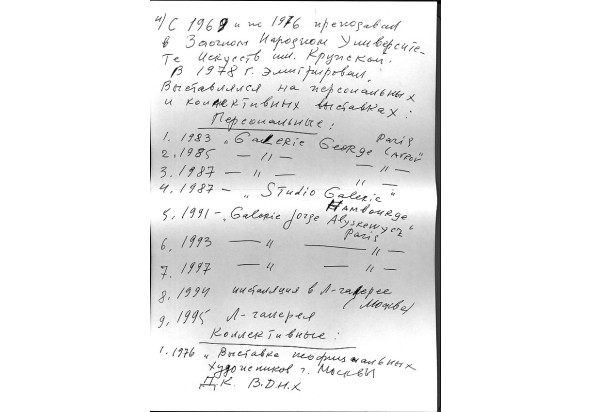 4) С 1969 и по 1976 преподавал
в Заочном Народном Университе-
те Искусств им. Крупской.
В 1978 г. Эмигрировал.
Выставлялся на персональных
и коллективных выставках:
Персональные:
1. 1983 „Galerie George Lavrov" Paris
2. 1985 — 〃 — — 〃 —
3. 1987 — 〃 — 〃 —
4. 1987 - „Studio Galerie" Hambourge
5. 1991 - „Galerie Jorge Alyskewycz" Paris
6. 1993 — 〃 — 〃 —
7. 1997 — 〃 — 〃 —
8. 1994 инсталяция в Л-галерее (Москва)
9. 1995 Л-галерея
Коллективные:
1. 1976 „Выставка неофициальных
художников г. Москвы
Д.К. В.Д.Н.Х